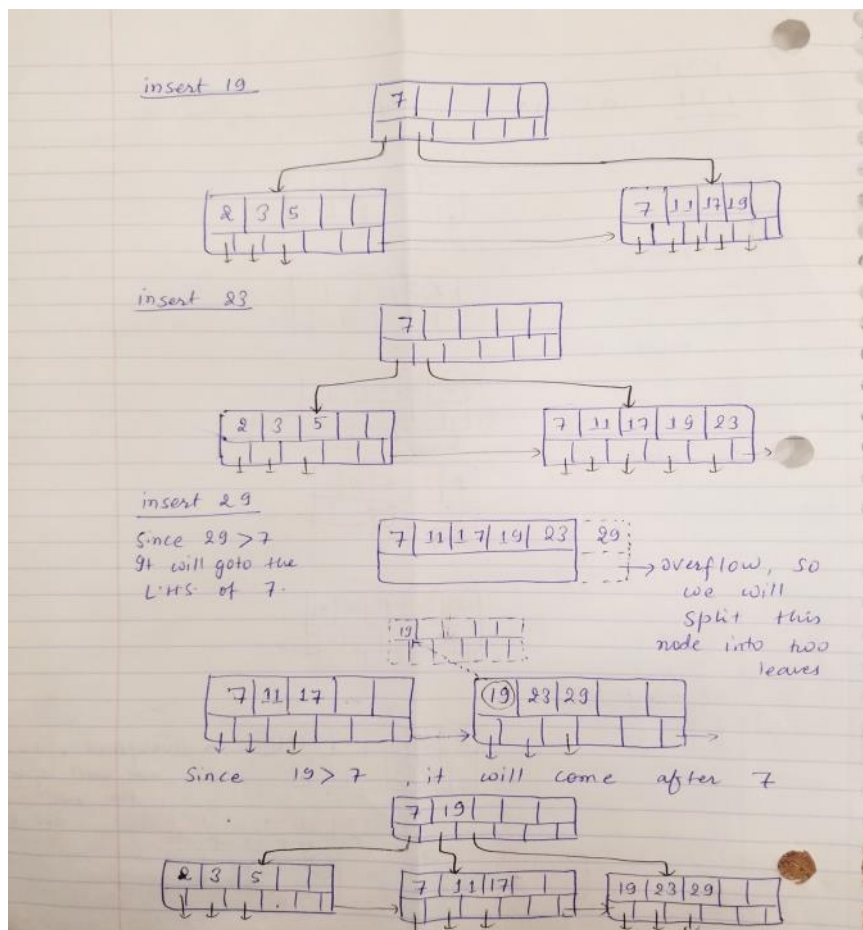 insert 19
7
2 3 5
7 11 17 19
insert 23
7
2 3 5
7 11 17 19 23
insert 29
Since 29 > 7
It will goto the
LHS of 7.
7 11 17 19 23 29
overflow, so
we will
split this
node into two
leaves
19
7 11 17
19 23 29
Since 19 > 7 , it will come after 7
7 19
2 3 5
7 11 17
19 23 29